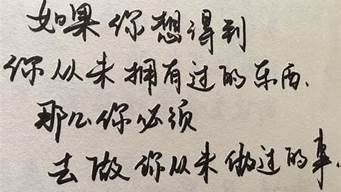 如果你想得到
你从未拥有过的东西.
那么你必须
去做你从未做过的事.